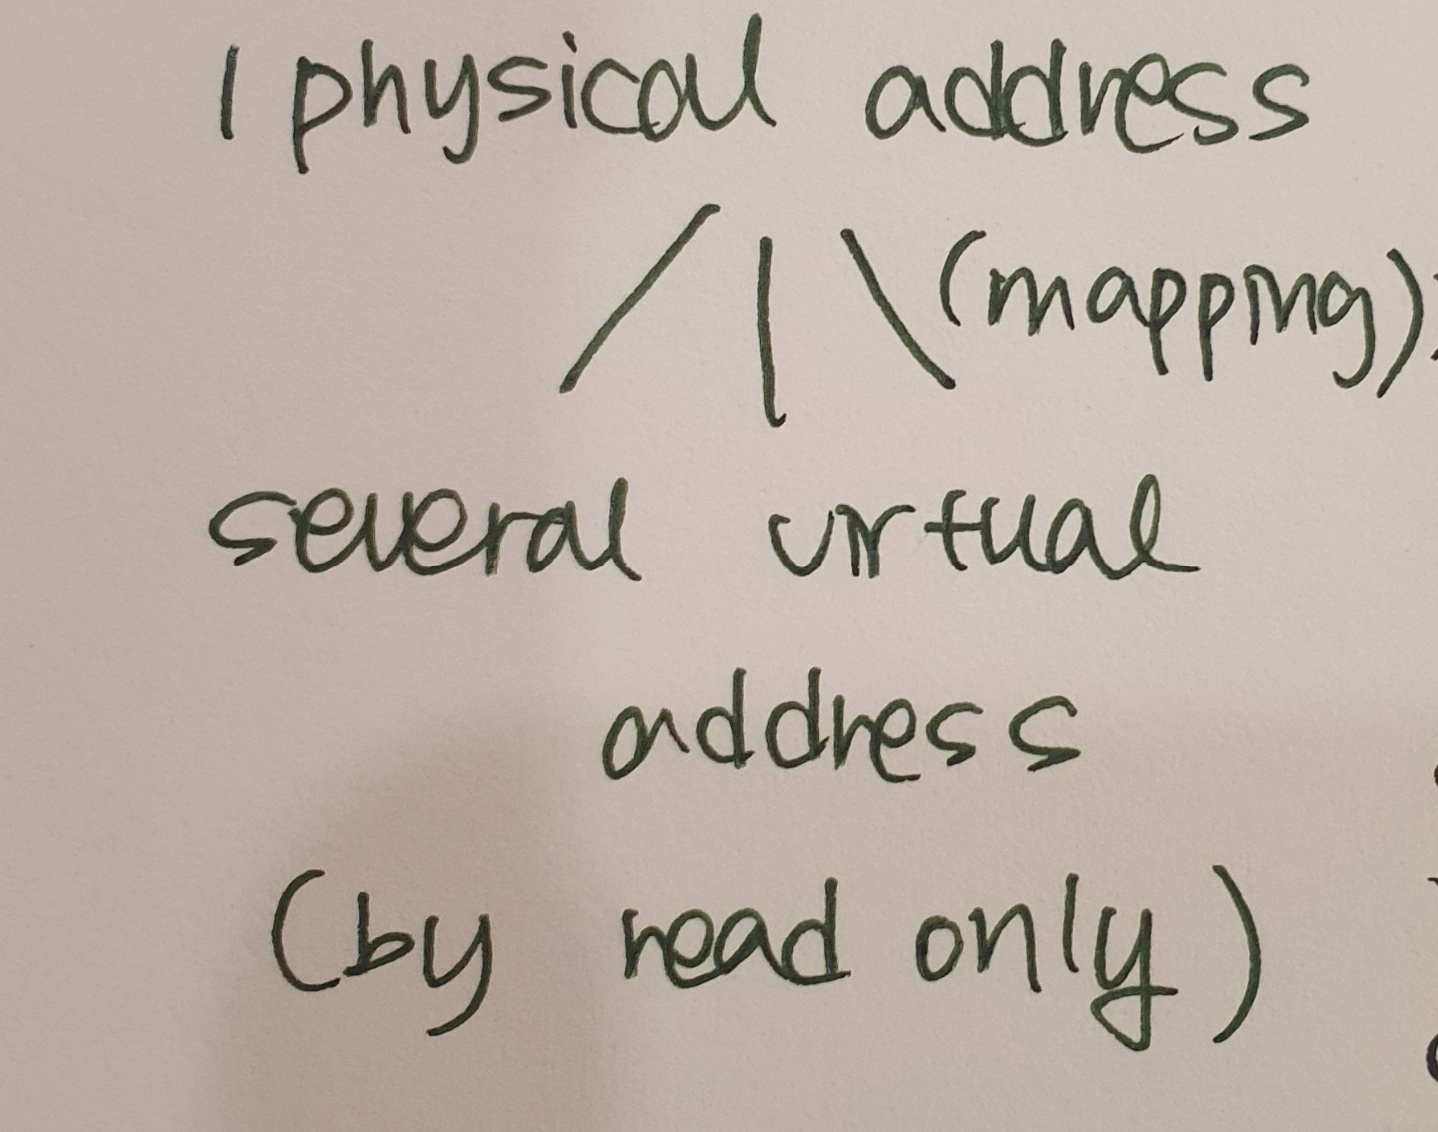 1 physical address
/ | \ (mapping)
several virtual
address
(by read only)